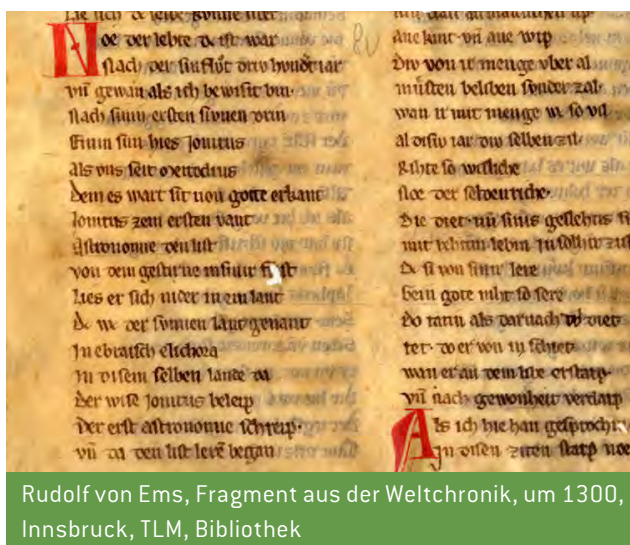 Noe der lebte dc ist war
Nach der sinflůt driv hundt iar
vn̄ gewan als ich bewisit bin·
Nach sinin ersten sunen drin
Einin sun hies Jonitus
als vns seit metodius
Dem es wart sit von gotte erkant
Jonitus zem ersten vant
Astronomie den list
von dem gestirne
Lies er sich nider in ein lant
Dc wc der sunnen lant genant
In ebraisch elichora
In disem selben lande da
Der wise Jonitus beleip
Der erst astronomie schreip·
vn̄ da den list lerē began
ane kint· vn̄ ane wip
Div von ir menge vber al
músten beliben sunder zal·
wan ir mit menge wc so vil
al disiv iar div selben zil
Rihte so wisliche
Noe der
Die diet· vn̄ sinis geslehtis
mit rehtim lebin in solhir
Dc si von sinir lere
gote niht so sere
Do tatin als darnach diet
tet· do er von in schiet·
wan er an dem libe erstarp·
vn̄ nach gewonheit verdarp
Als ich hie han gesprochi
In disen ziten starp noe
Rudolf von Ems, Fragment aus der Weltchronik, um 1300,
Innsbruck, TLM, Bibliothek